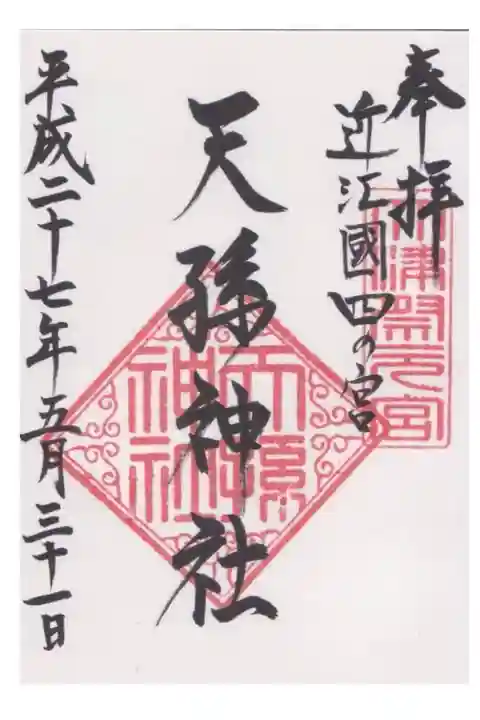 奉拝
大津祭之宮
近江國四の宮
天孫神社
天孫神社
平成二十七年五月三十一日